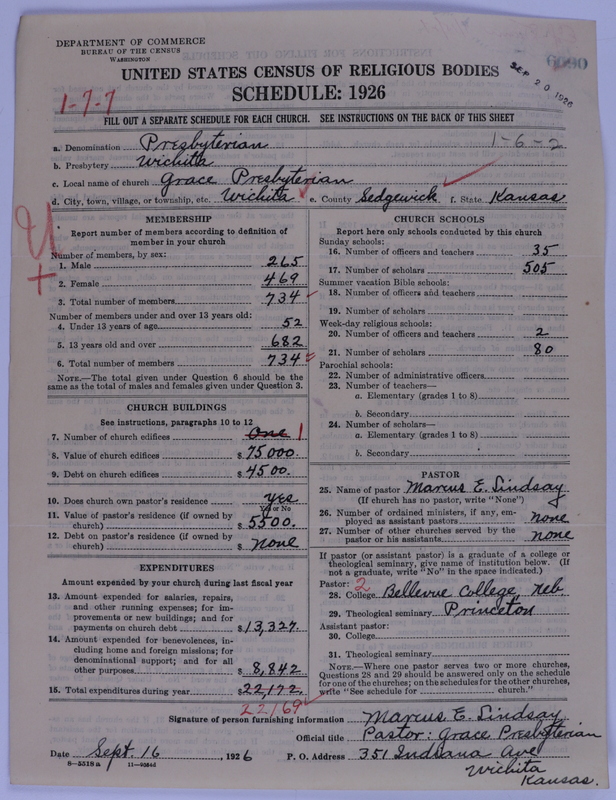 DEPARTMENT OF COMMERCE
BUREAU OF THE CENSUS
WASHINGTON
UNITED STATES CENSUS OF RELIGIOUS BODIES
SEP 20 1926
SCHEDULE: 1926
1-7-7
FILL OUT A SEPARATE SCHEDULE FOR EACH CHURCH. SEE INSTRUCTIONS ON THE BACK OF THIS SHEET
a. Denomination Presbyterian 1-6-2
b. Presbytery Wichita
c. Local name of church Grace Presbyterian
d. City, town, village, or township, etc. Wichita e. County Sedgewick f. State Kansas
MEMBERSHIP
Report number of members according to definition of
member in your church
Number of members, by sex:
1. Male 265
2. Female 469
3. Total number of members 734
Number of members under and over 13 years old:
4. Under 13 years of age 52
5. 13 years old and over 682
6. Total number of members 734
NOTE.—The total given under Question 6 should be
same as the total of males and females given under Question 3.
CHURCH BUILDINGS
See instructions, paragraphs 10 to 12
7. Number of church edifices One 1
8. Value of church edifices $ 75000.
9. Debt on church edifices $ 4500.
10. Does church own pastor's residence yes
Yes or No
11. Value of pastor's residence (if owned by
church) $ 5500.
12. Debt on pastor's residence (if owned by
church) $ none
EXPENDITURES
Amount expended by your church during last fiscal year
13. Amount expended for salaries, repairs,
and other running expenses; for im-
provements or new buildings; and for
payments on church debt $ 13,327.
14. Amount expended for benevolences, in-
cluding home and foreign missions; for
denominational support; and for all
other purposes $ 8,842
15. Total expenditures during year $ 22,172
22169
CHURCH SCHOOLS
Report here only schools conducted by this church
Sunday schools:
16. Number of officers and teachers 35
17. Number of scholars 505
Summer vacation Bible schools:
18. Number of officers and teachers
19. Number of scholars
Week-day religious schools:
20. Number of officers and teachers 2
21. Number of scholars 80
Parochial schools:
22. Number of administrative officers
23. Number of teachers—
a. Elementary (grades 1 to 8)
b. Secondary
24. Number of scholars—
a. Elementary (grades 1 to 8)
b. Secondary
PASTOR
25. Name of pastor Marcus E. Lindsay
(If church has no pastor, write "None")
26. Number of ordained ministers, if any, em-
ployed as assistant pastors none
27. Number of other churches served by the
pastor or his assistants none
If pastor (or assistant pastor) is a graduate of a college or
theological seminary, give name of institution below. (If
not a graduate, write "No" in the space indicated.)
Pastor: 2
28. College Bellevue College, Neb
29. Theological seminary Princeton
Assistant pastor:
30. College
31. Theological seminary
NOTE.—Where one pastor serves two or more churches,
Questions 28 and 29 should be answered only on the schedule
for one of the churches; on the schedules for the other churches,
write "See schedule for church."
Signature of person furnishing information Marcus E. Lindsay
Official title Pastor: Grace Presbyterian
Date Sept. 16, 1926 P. O. Address 351 Indiana Ave
Wichita
Kansas.
8-5518a 11-9584d